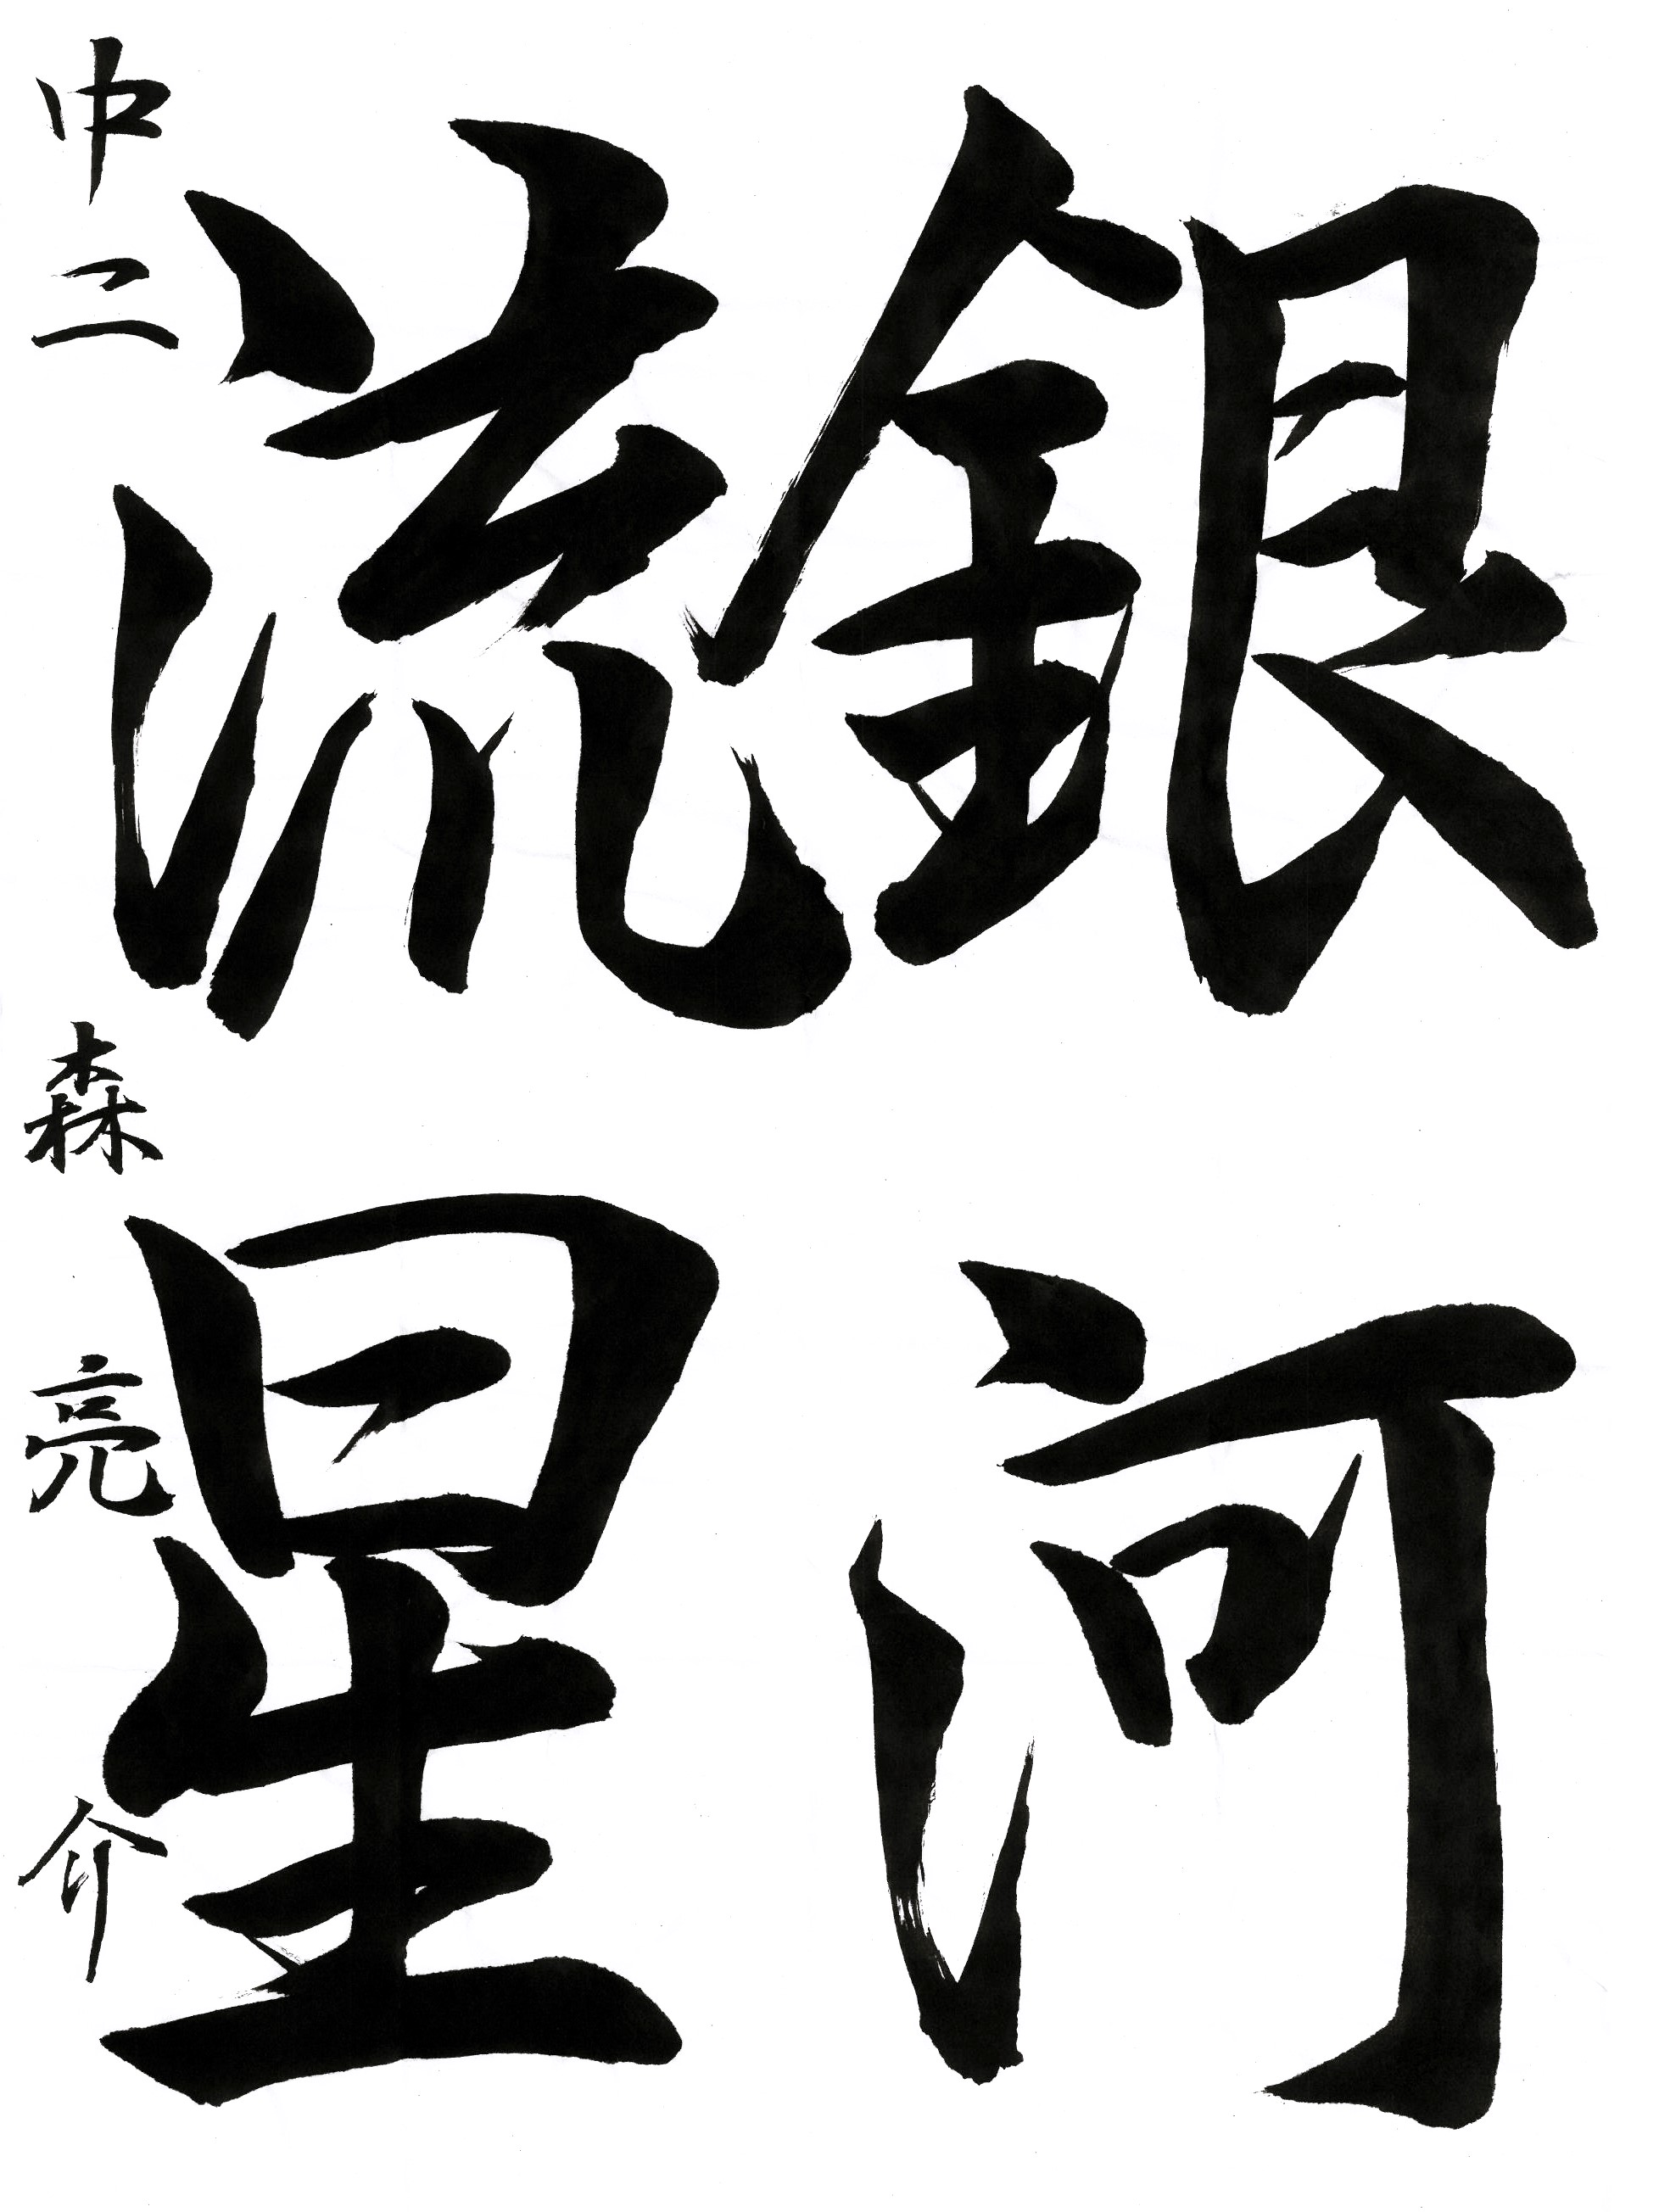 銀河
流星
中二 森亮介